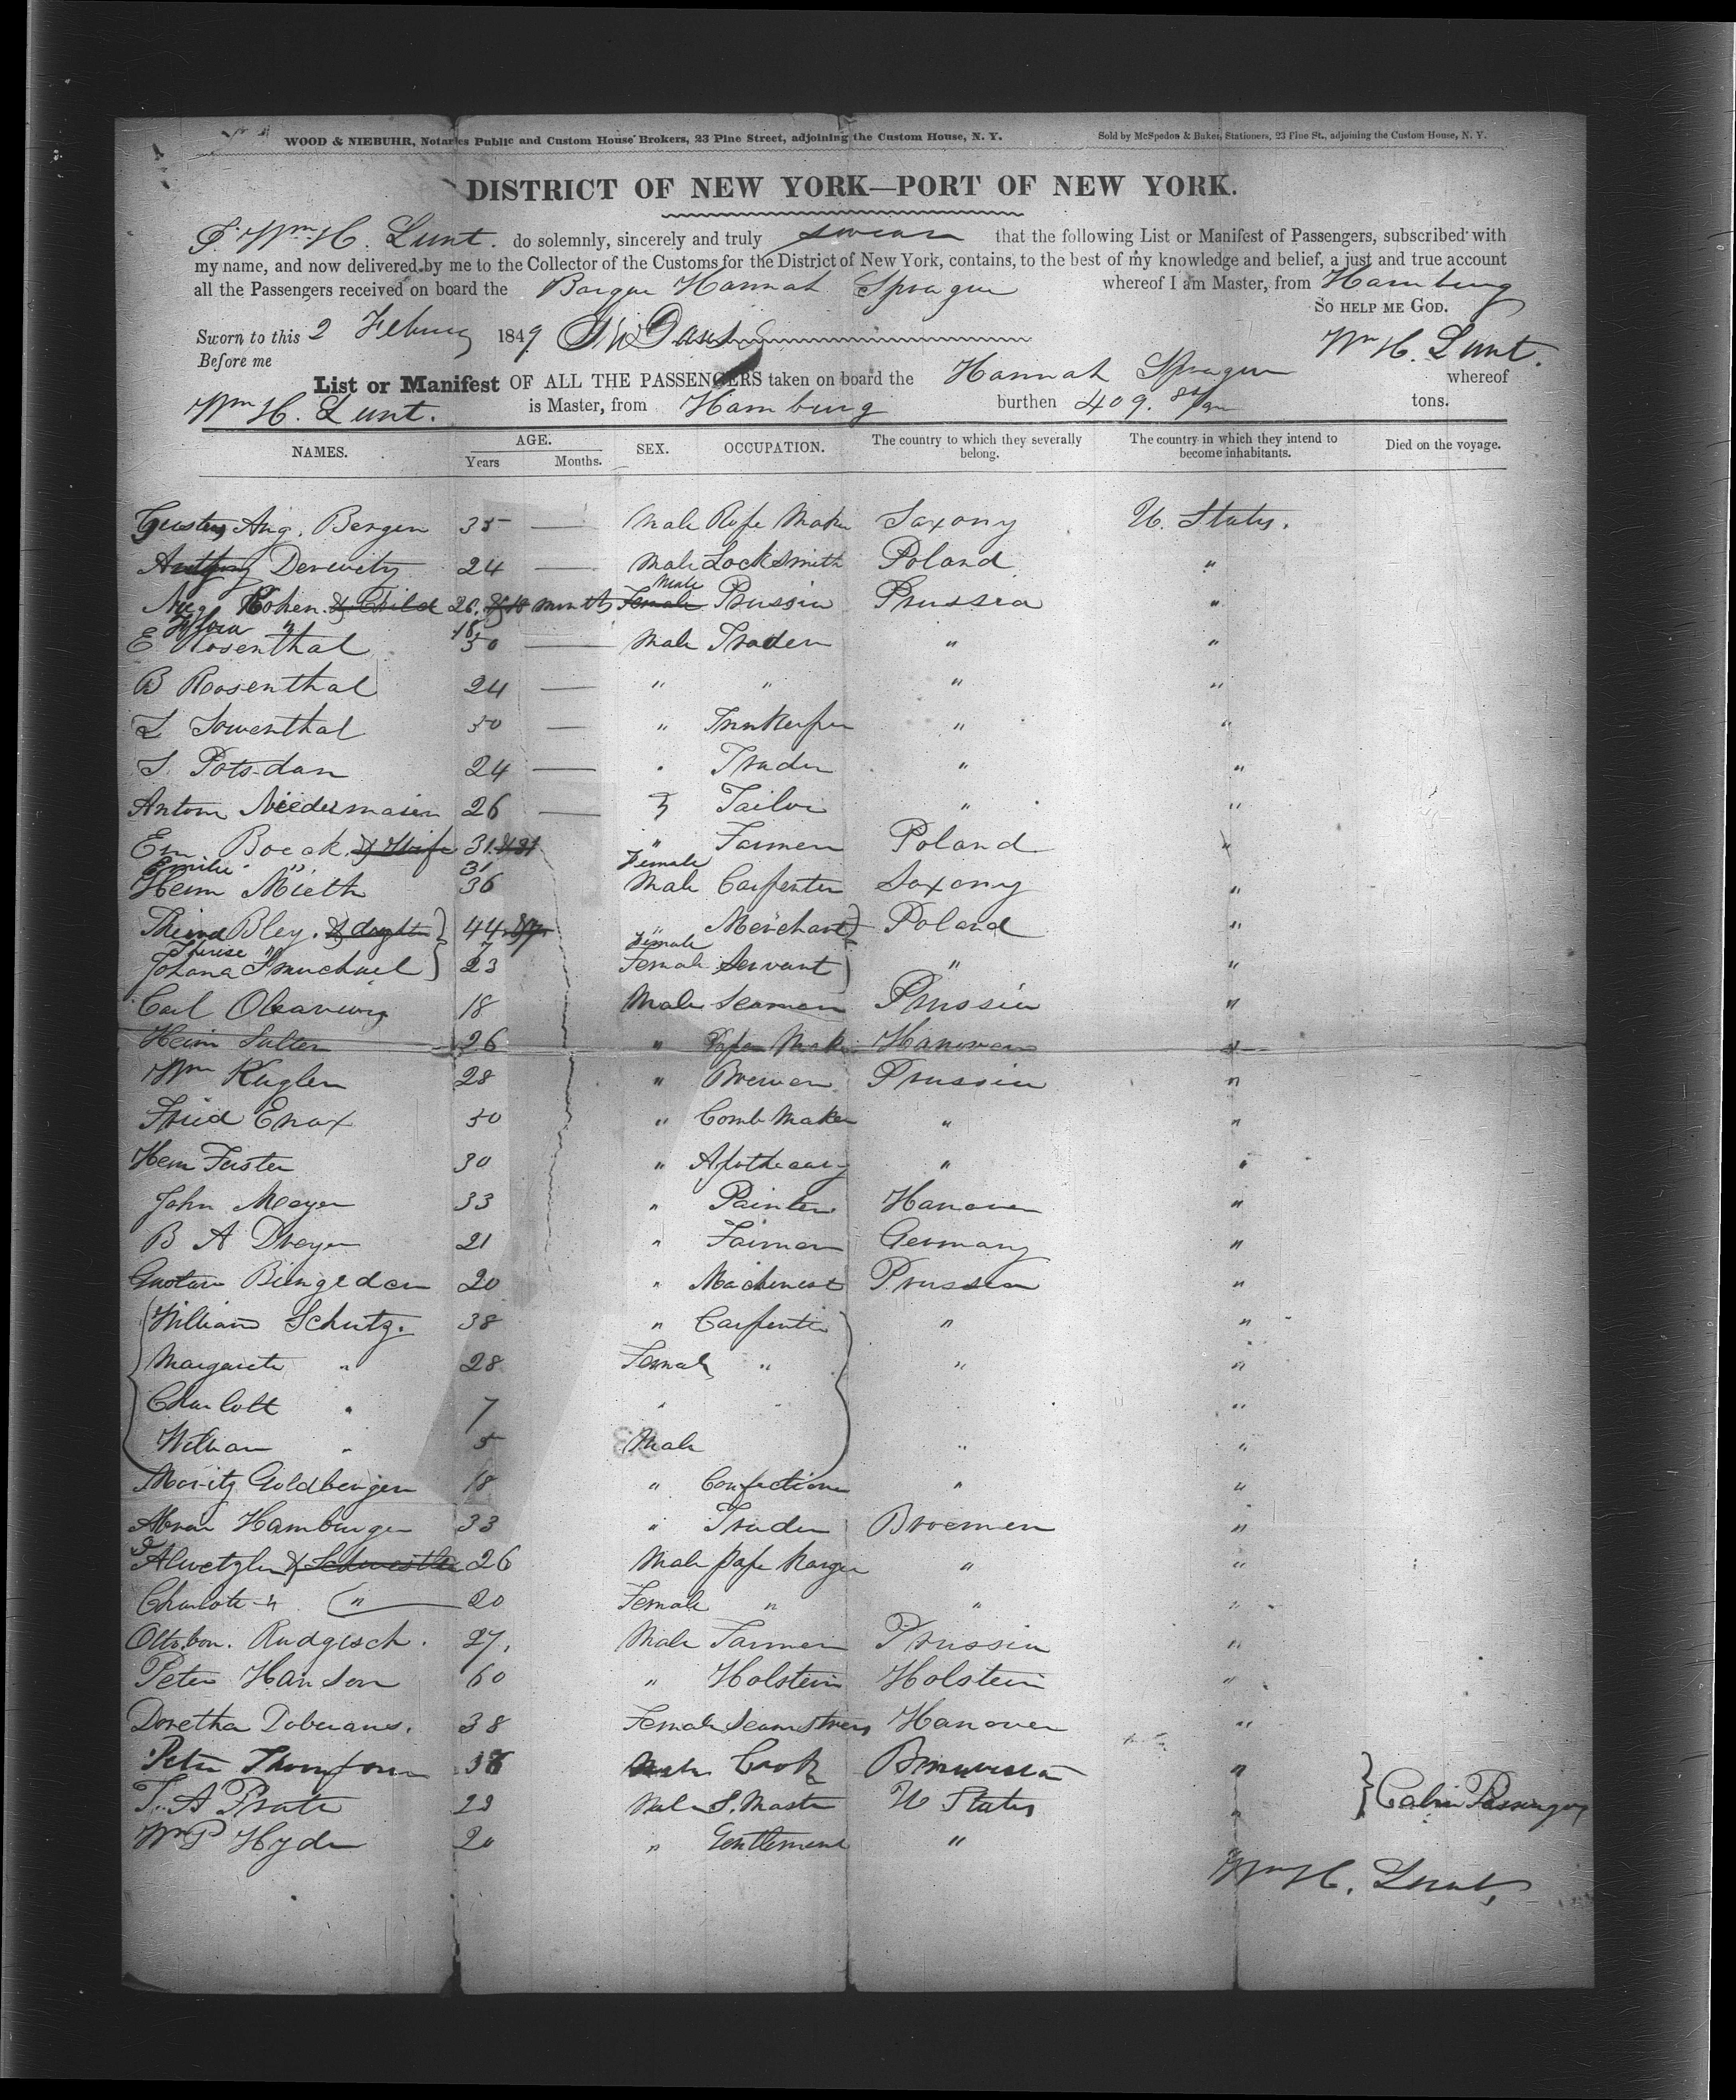 WOOD & NIEBUHR, Notaries Public and Custom House Brokers, 23 Pine Street, adjoining the Custom House, N. Y.
Sold by McSpedon & Baker, Stationers, 23 Pine St., adjoining the Custom House, N. Y.
DISTRICT OF NEW YORK—PORT OF NEW YORK.
I Wm H. Lunt. do solemnly, sincerely and truly swear that the following List or Manifest of Passengers, subscribed with
my name, and now delivered by me to the Collector of the Customs for the District of New York, contains, to the best of my knowledge and belief, a just and true account
all the Passengers received on board the Barque Hannah Sprague whereof I am Master, from Hamburg
SO HELP ME GOD.
Sworn to this 2 Februy 1849
Wm H. Lunt.
Before me
List or Manifest OF ALL THE PASSENGERS taken on board the Hannah Sprague whereof
Wm H. Lunt. is Master, from Hamburg burthen 409. tons.
NAMES. AGE. Years Months. SEX. OCCUPATION. The country to which they severally belong. The country in which they intend to become inhabitants. Died on the voyage.
Gustav Aug. Bergen 35 — Male Rope Maker Saxony U. States.
Derewitz 24 — Male Locksmith Poland "
Aug Kohen & Child 26. months Female Male Prussia Prussia "
Flora " 18
E Rosenthal 50 — Male Trader " "
B Rosenthal 24 — " " " "
L Lowenthal 50 — " Innkeeper " "
S. Potsdam 24 — . Trader " "
Anton Niedermaier 26 — " Tailor " "
Em Boeck & Wife 31. & 31 " Farmer Poland "
Emilie " 31 Female
Heim Mieth 36 Male Carpenter Saxony "
Bley. & daughter 44 & 7 " Merchant Poland "
Therese " 7 Female
Johana 23 Female Servant " "
Carl 18 Male Seaman Prussia "
Heim Salter 26 " Paper Maker Hanover "
Wm Kugler 28 " Brewer Prussia "
Fried Enax 50 " Comb Maker " "
Hem Faster 30 " Apothecary " "
John Meyer 33 " Painter Hanover "
B A Dreyer 21 " Farmer Germany "
Gustav 20 " Machinest Prussia "
William Schutz. 38 " Carpenter " "
Margarete " 28 Female " " "
Charlott " 7 " "
William " 5 Male " "
Moritz Goldberger 18 " Confectioner " "
Abram Hamburger 33 " Trader Broemen "
Alwetzler & Schwester 26 Male Pape Hanger " "
Charlote " " 20 Female " " "
Otto von. Rudgisch. 27. Male Farmer Prussia "
Peter Hanson 60 " Holstein Holstein "
Doretha Doberans. 38 Female Seamstress Hanover "
Peter Thompson 38 Male Cook "
T. A Prate 23 Male S. Master U States " Cabin Passengers
Wm P Hyde 20 " Gentlemen " "
Wm H. Lunt.